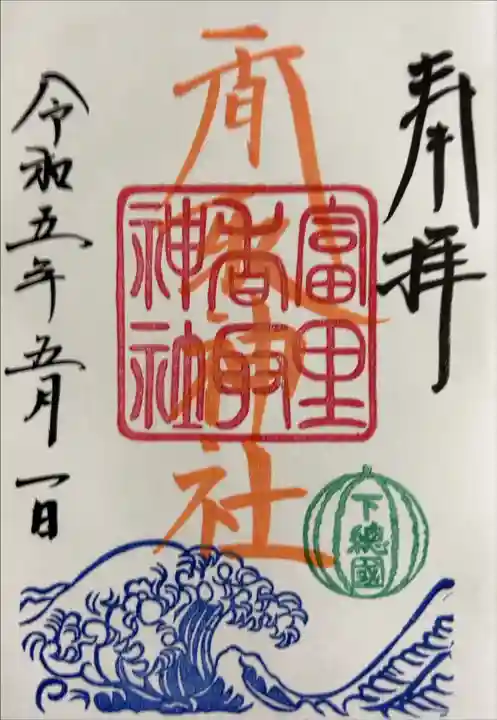 奉拝
神社
富里
神社
下總國
令和五年五月一日